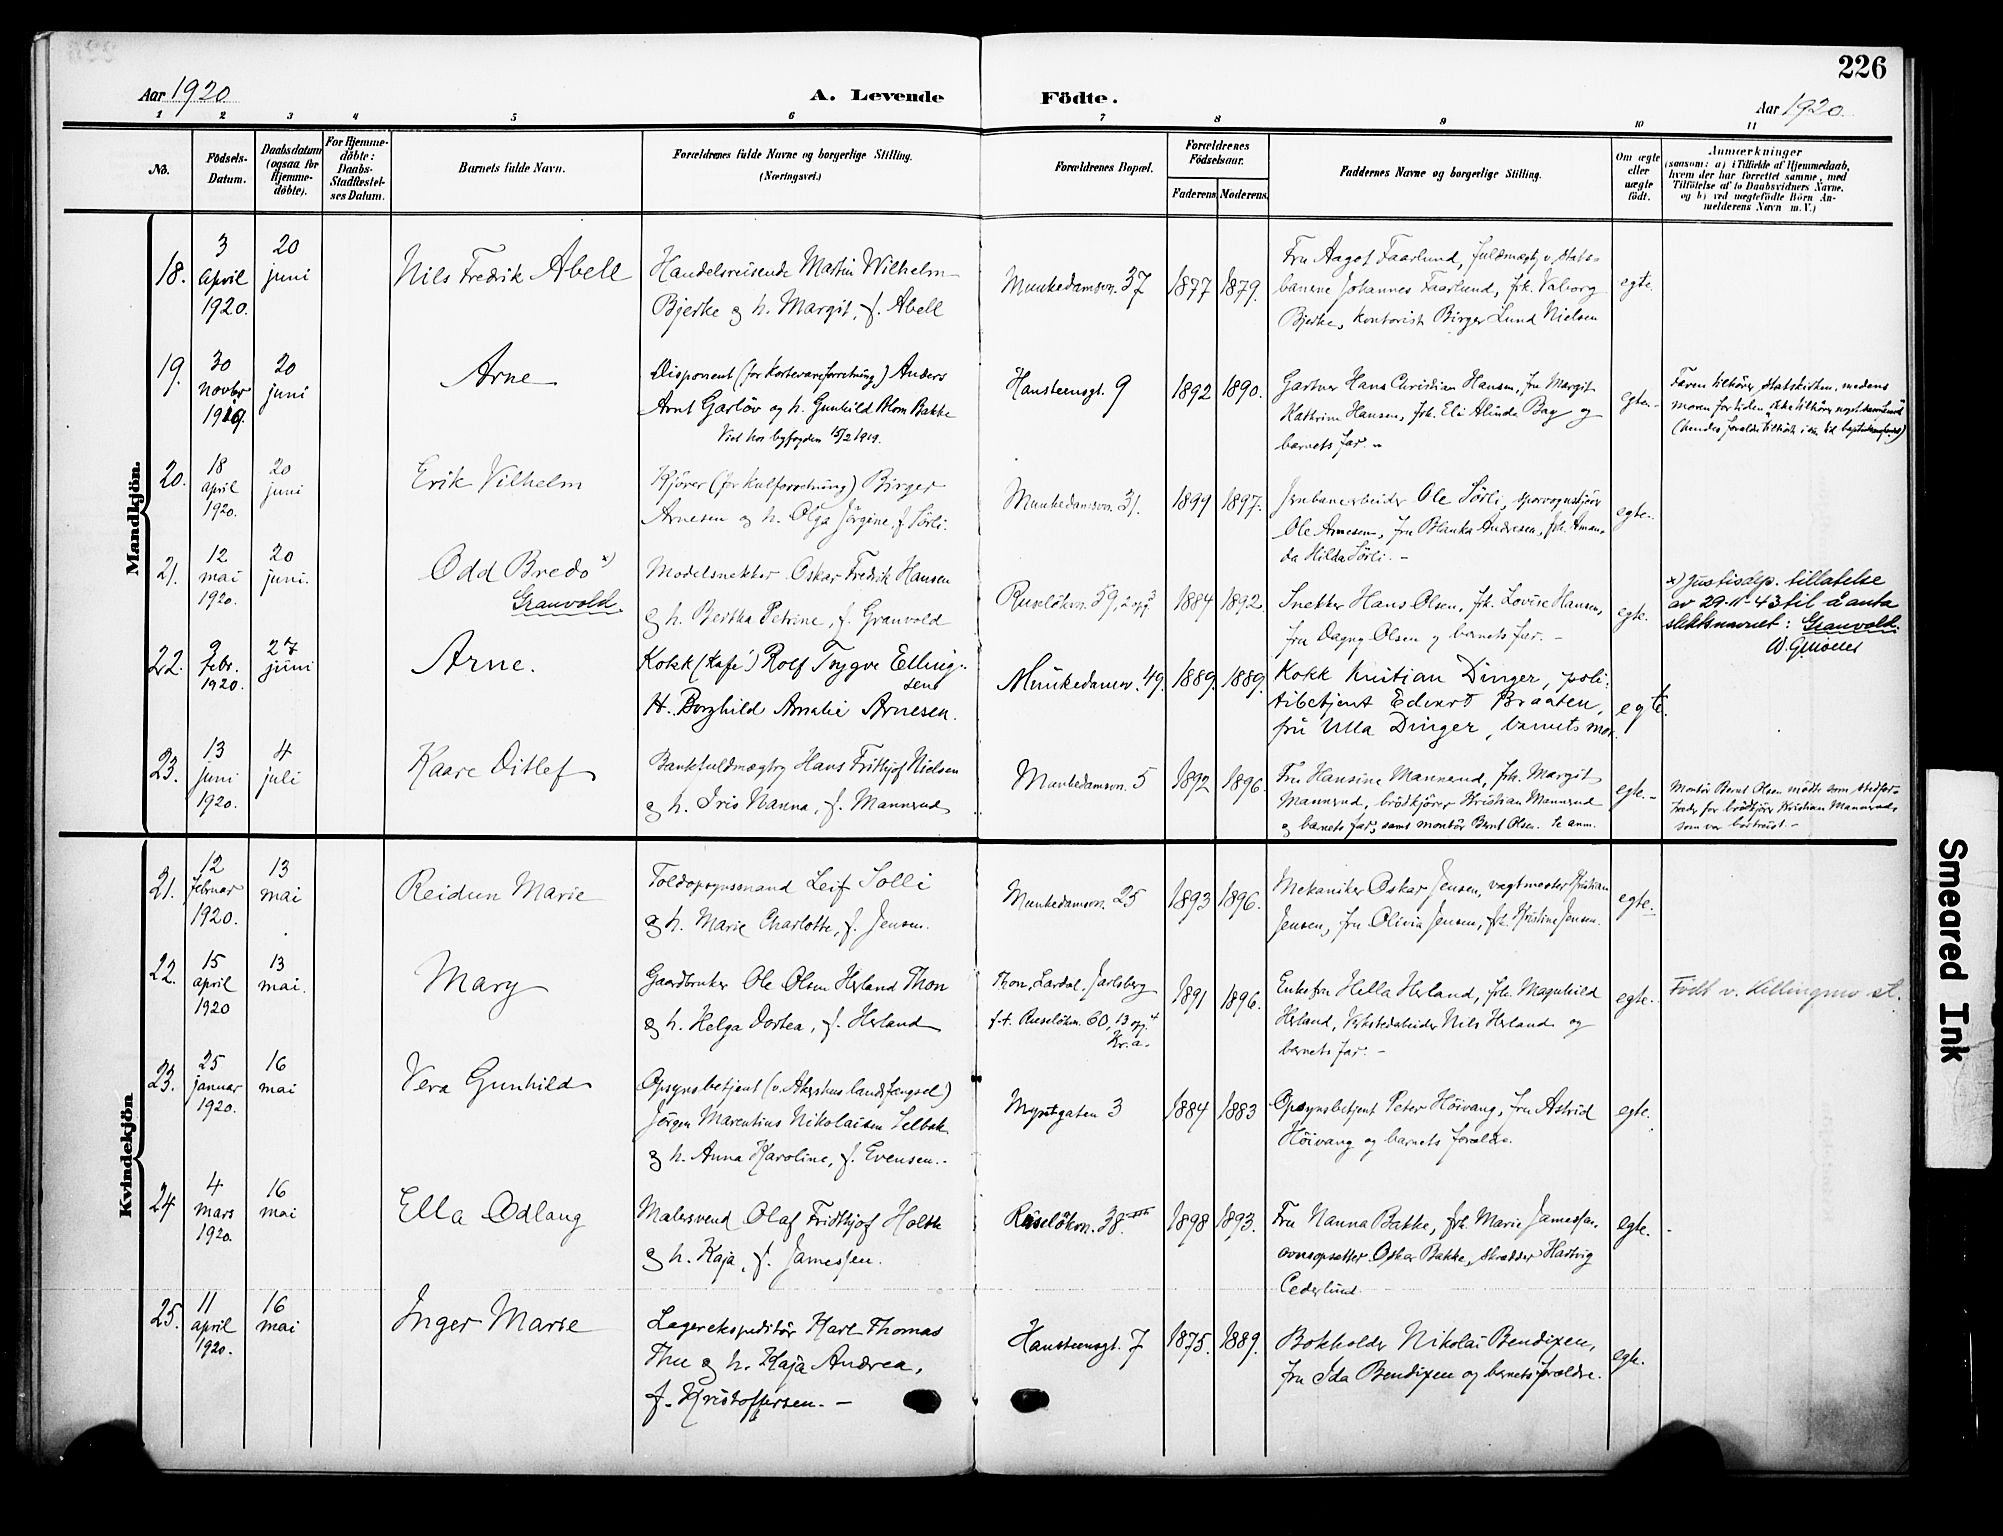 226
Aar 1920
A. Levende Födte.
Aar 1920.
1 2 3 4 5 6 7 8 9 10 11
No.
Födsels-
Datum.
Daabsdatum
(ogsaa for
Hjemme-
döbte).
For Hjemme-
döbte:
Daabs-
Stadfæstel-
ses Datum.
Barnets fulde Navn.
Forældrenes fulde Navne og borgerlige Stilling.
(Næringsvei.)
Forældrenes Bopæl.
Forældrenes
Födselsaar.
Faderens
Moderens.
Faddernes Navne og borgerlige Stilling.
Om ægte
eller
uægte
födt.
Anmærkninger
(saasom: a) i Tilfælde af Hjemmedaab,
hvem der har forrettet samme, med
Tilföielse af to Daabsvidners Navne,
og b) ved uægtefödte Börn An-
melderens Navn m. V.)
Mandkjön.
18.
3
April
1920.
20
juni
Nils Fredrik Abell
Handelsreisende Martin Wilhelm
Bjerke og h. Margit, f. Abell
Munkedamsvn. 37
1877
1879.
Fru Aagot Faarlund, fuldmægtg v. Stats-
banerne Johannes Faarlund, frk. Valborg
Bjerke, kontorist Birger Lund Nielsen
egte.
19.
30
novbr
1919.
20
juni
Arne
Disponent (for kortevareforretning) Anders
Arnt Garløv og h. Gunhild Blom Bakke
Viet hos byfogden 15/2 1919.
Hansteensgt. 9
1892
1890.
Gartner Hans Christian Hansen, fru Margit
Kathrine Hansen, frk. Eli Alinda Bag og
barnets far. -
egte. -
Faren tilhörer statskirken, medens
moren for tiden ikke tilhörer noget samfund
20.
18
april
1920.
20
juni
Erik Vilhelm
Kjörer (for kulforretning) Birger
Arnesen og h. Olga Jörgine, f. Sörli.
Munkedamsvn. 31.
1899
1897.
Jernbanearbeider Ole Sörli, sporvognskjörer
Ole Arnesen, fru Blanka Andresen, frk. Aman-
da Hilda Sörli. -
egte.
21.
12
mai
1920.
20
juni.
Odd Bredo x)
Granvold.
Modelsnekker Oskar Fredrik Hansen
og h. Bertha Petrine, f. Granvold
Ruselökvn. 59, 2 opg. 3
1884
1892.
Snekker Hans Olsen, frk. Lovise Hansen,
fru Dagny Olsen og barnets far. -
egte.
x) Justisdep. tillatelse
av 29-11-43 til å anta
slektsnavnet: Granvold.
22.
9
febr.
1920.
27
juni
Arne.
Kokk (Kafe') Rolf Trygve Elling-
sen
H. Borghild Amalie Arnesen.
Munkedamsv. 49.
1889.
1889.
Kokk Kristian Dinger, poli-
tibetjent Edvart Braaten,
fru Ulla Dinger, barnets mor.
egte.
23.
13
juni
1920.
4
juli
Kaare Ditlef
Bankfuldmægtig Hans Frithjof Nielsen
og h. Iris Nanna, f. Mannerud
Munkedamsvn. 5
1892
1896.
Fru Hansine Mannerud, frk. Margit
Mannerud, brödkjörer Kristian Mannerud
og barnets far, samt montör Bernt Olsen. Se anm.
egte. -
Montör Bernt Olsen mödte som stedfor-
træder for brödkjörer Kristian Mannerud,
som var bortreist. -
Kvindekjön
21.
12
februar
1920.
13
mai
Reidun Marie
Toldopsynsmand Leif Solli
og h. Marie Charlotte, f. Jensen.
Munkedamsvn. 25
1893
1896.
Mekaniker Oskar Jensen, vagtmester Kristian
Jensen, fru Olivia Jensen, frk. Kristine Jensen.
egte.
22.
15
april
1920
13
mai.
Mary
Gaardbruker Ole Olsen Herland Thon
og h. Helga Dortea, f. Herland
Thon, Lardal, Jarlsberg
f.t. Ruselökvn. 60, 13 opg. 4
Kr.a.
1891
1896.
Enkefru Hella Herland, frk. Magnhild
Herland, Verkstedarbeider Nils Herland og
barnets far. -
egte.
Född v.
23.
25
januar
1920.
16
mai
Vera Gunhild
Opsynsbetjent (v. Akershus landsfængsel)
Jörgen Marentius Nikolaisen Selbak
og h. Anna Karoline, f. Evensen. -
Myntgaten 3
1884
1883
Opsynsbetjent Peter Höivang, fru Astrid
Höivang og barnets forældre.
egte.
24
4
mars
1920.
16
mai
Ella Odlaug
Malersvend Olaf Fridthjof Holth
og h. Kaja, f. Jamessen.
Ruselökvn. 38.
1898
1893.
Fru Nanna Bakke, frk. Marie Jamessen,
ovnsopsetter Oskar Bakke, skrædder Hartvig
Cederlund.
egte.
25.
11
april
1920.
16
mai
Inger Marie
Lagerekspeditör Karl Thomas
Thu og h. Kaja Andrea,
f. Kristoffersen. -
Hansteensgt. 7
1875.
1889.
Bokholder Nikolai Bendixen,
fru Ida Bendixen og barnets forældre.
egte.
Smeared Ink